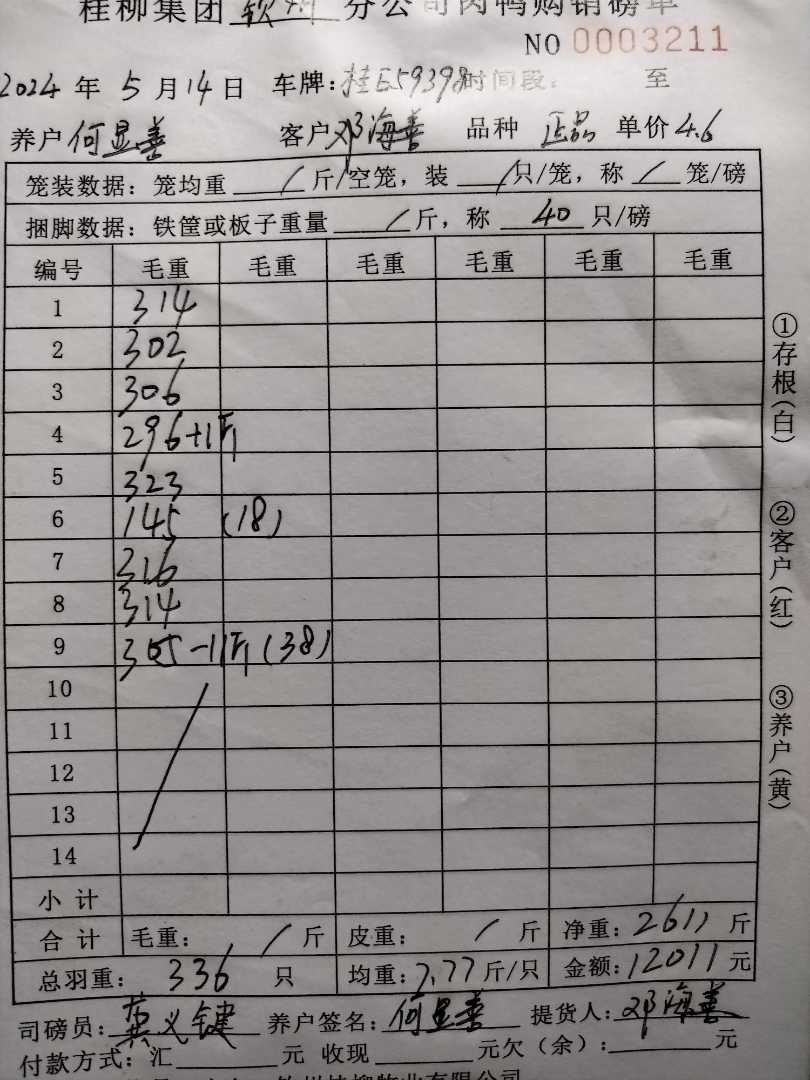 桂柳集团 钦州 分公司肉鸭购销磅单
NO 0003211
2024 年 5 月 14 日 车牌：桂E59398 时间段： 至
养户 何显善 客户 邓海善 品种 正品 单价 4.6
笼装数据：笼均重 / 斤/空笼，装 / 只/笼，称 / 笼/磅
捆脚数据：铁筐或板子重量 / 斤，称 40 只/磅
编号 毛重 毛重 毛重 毛重 毛重 毛重
1 314
2 302
3 306
4 296+1斤
5 323
6 145 (18)
7 316
8 314
9 305-11斤(38)
10
11
12
13
14
小 计
合 计 毛重： / 斤 皮重： / 斤 净重：2611 斤
总羽重： 336 只 均重：7.77 斤/只 金额：12011 元
司磅员：龚义键 养户签名：何显善 提货人：邓海善
付款方式：汇 元 收现 元欠（余）： 元
①存根（白）
②客户（红）
③养户（黄）